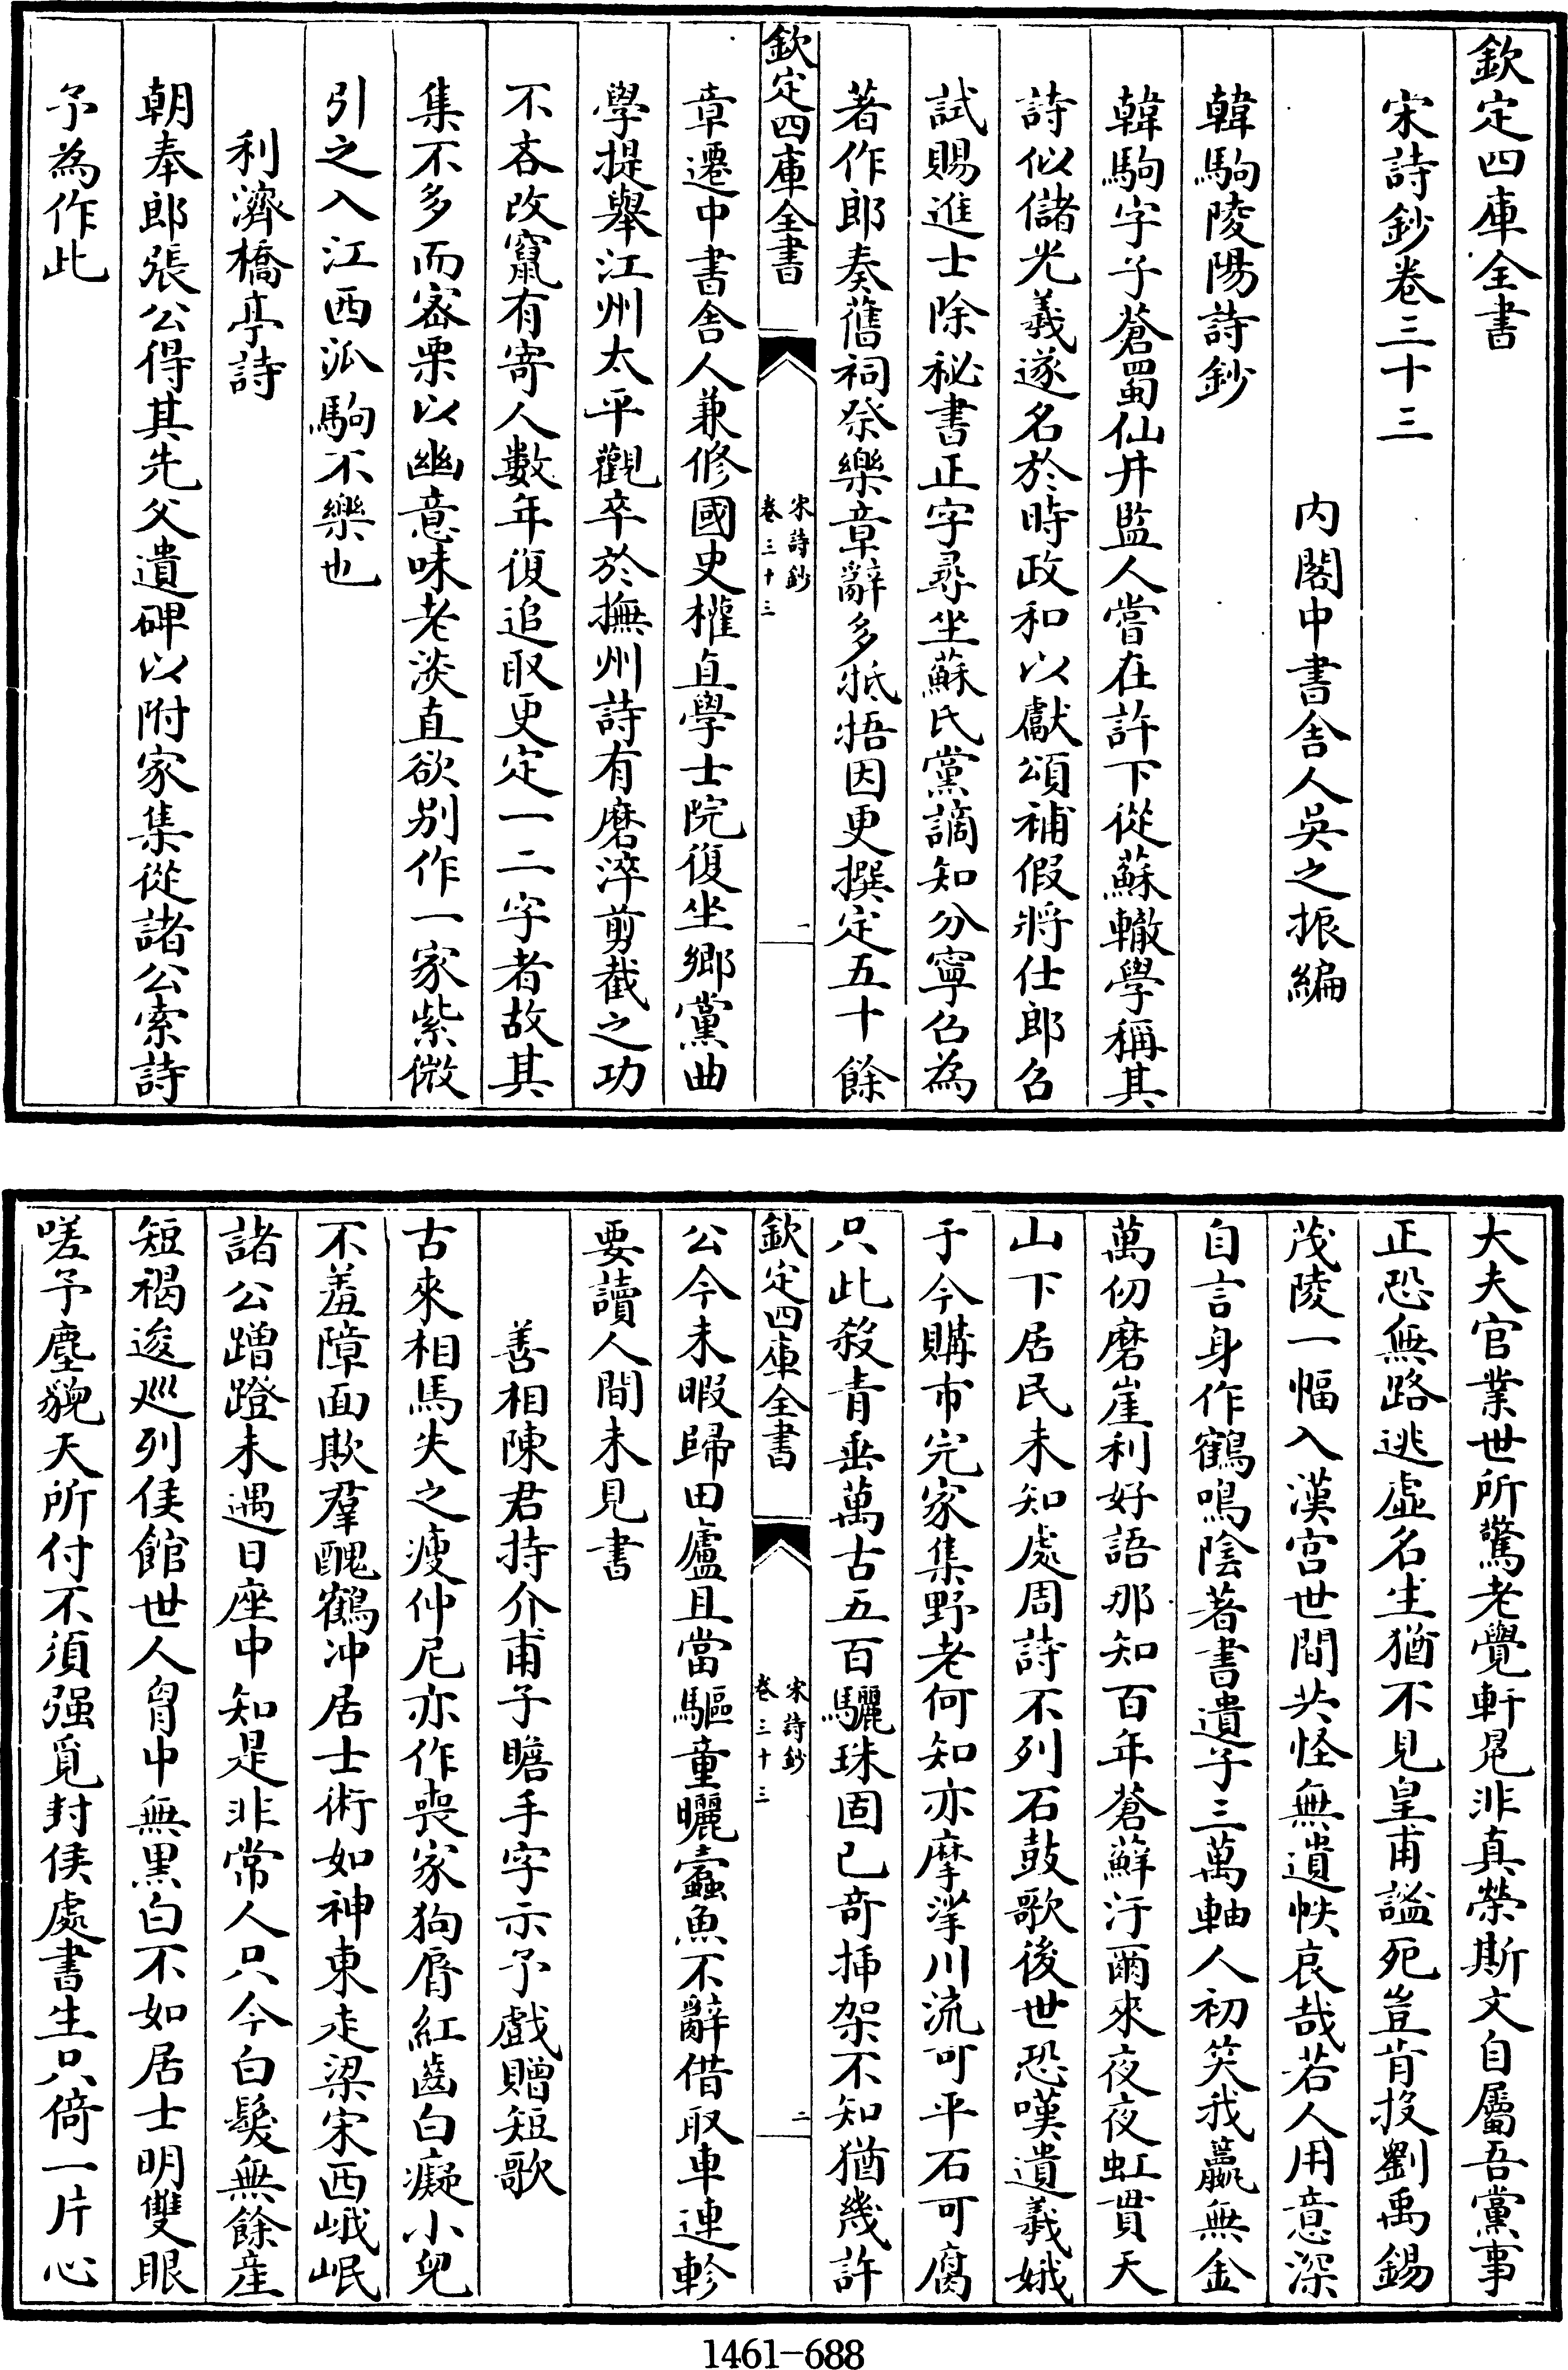 欽定四庫全書
宋詩鈔卷三十三
內閣中書舍人吳之振編
韓駒陵陽詩鈔
韓駒字子蒼蜀仙井監人嘗在許下從蘇轍學稱其
詩似儲光羲遂名於時政和以獻頌補假將仕郎召
試賜進士除秘書正字尋坐蘇氏黨謫知分寧召為
著作郎奏舊祠祭樂章辭多牴牾因更撰定五十餘
欽定四庫全書
宋詩鈔
卷三十三
一
章遷中書舍人兼修國史權直學士院復坐鄉黨曲
學提舉江州太平觀卒於撫州詩有磨淬剪截之功
不吝改竄有寄人數年復追取更定一二字者故其
集不多而密栗以幽意味老淡直欲别作一家紫微
引之入江西派駒不樂也
利濟橋亭詩
朝奉郎張公得其先父遺碑以附家集從諸公索詩
予為作此
大夫官業世所驚老覺軒冕非真榮斯文自屬吾黨事
正恐無路逃虛名生猶不見皇甫謐死豈肯投劉禹錫
茂陵一幅入漢宮世間共怪無遺帙哀哉若人用意深
自言身作鶴鳴陰著書遺子三萬軸人初笑我籯無金
萬仞磨崖利好語那知百年蒼蘚汙爾來夜夜虹貫天
山下居民未知處周詩不列石鼓歌後世恐嘆遺羲娥
于今購市完家集野老何知亦摩挲川流可平石可腐
只此殺青垂萬古五百驪珠固已竒插架不知猶幾許
欽定四庫全書
宋詩鈔
卷三十三
二
公今未暇歸田廬且當驅童曬蠹魚不辭借取車連軫
要讀人間未見書
善相陳君持介甫子瞻手字示予戲贈短歌
古來相馬失之瘦仲尼亦作喪家狗脣紅齒白癡小兒
不羞障面欺羣醜鶴冲居士術如神東走梁宋西峨岷
諸公蹭蹬未遇日座中知是非常人只今白髮無餘産
短褐逡巡列侯館世人胷中無黒白不如居士明雙眼
嗟予塵貌天所付不須强覓封侯處書生只倚一片心
1461-688